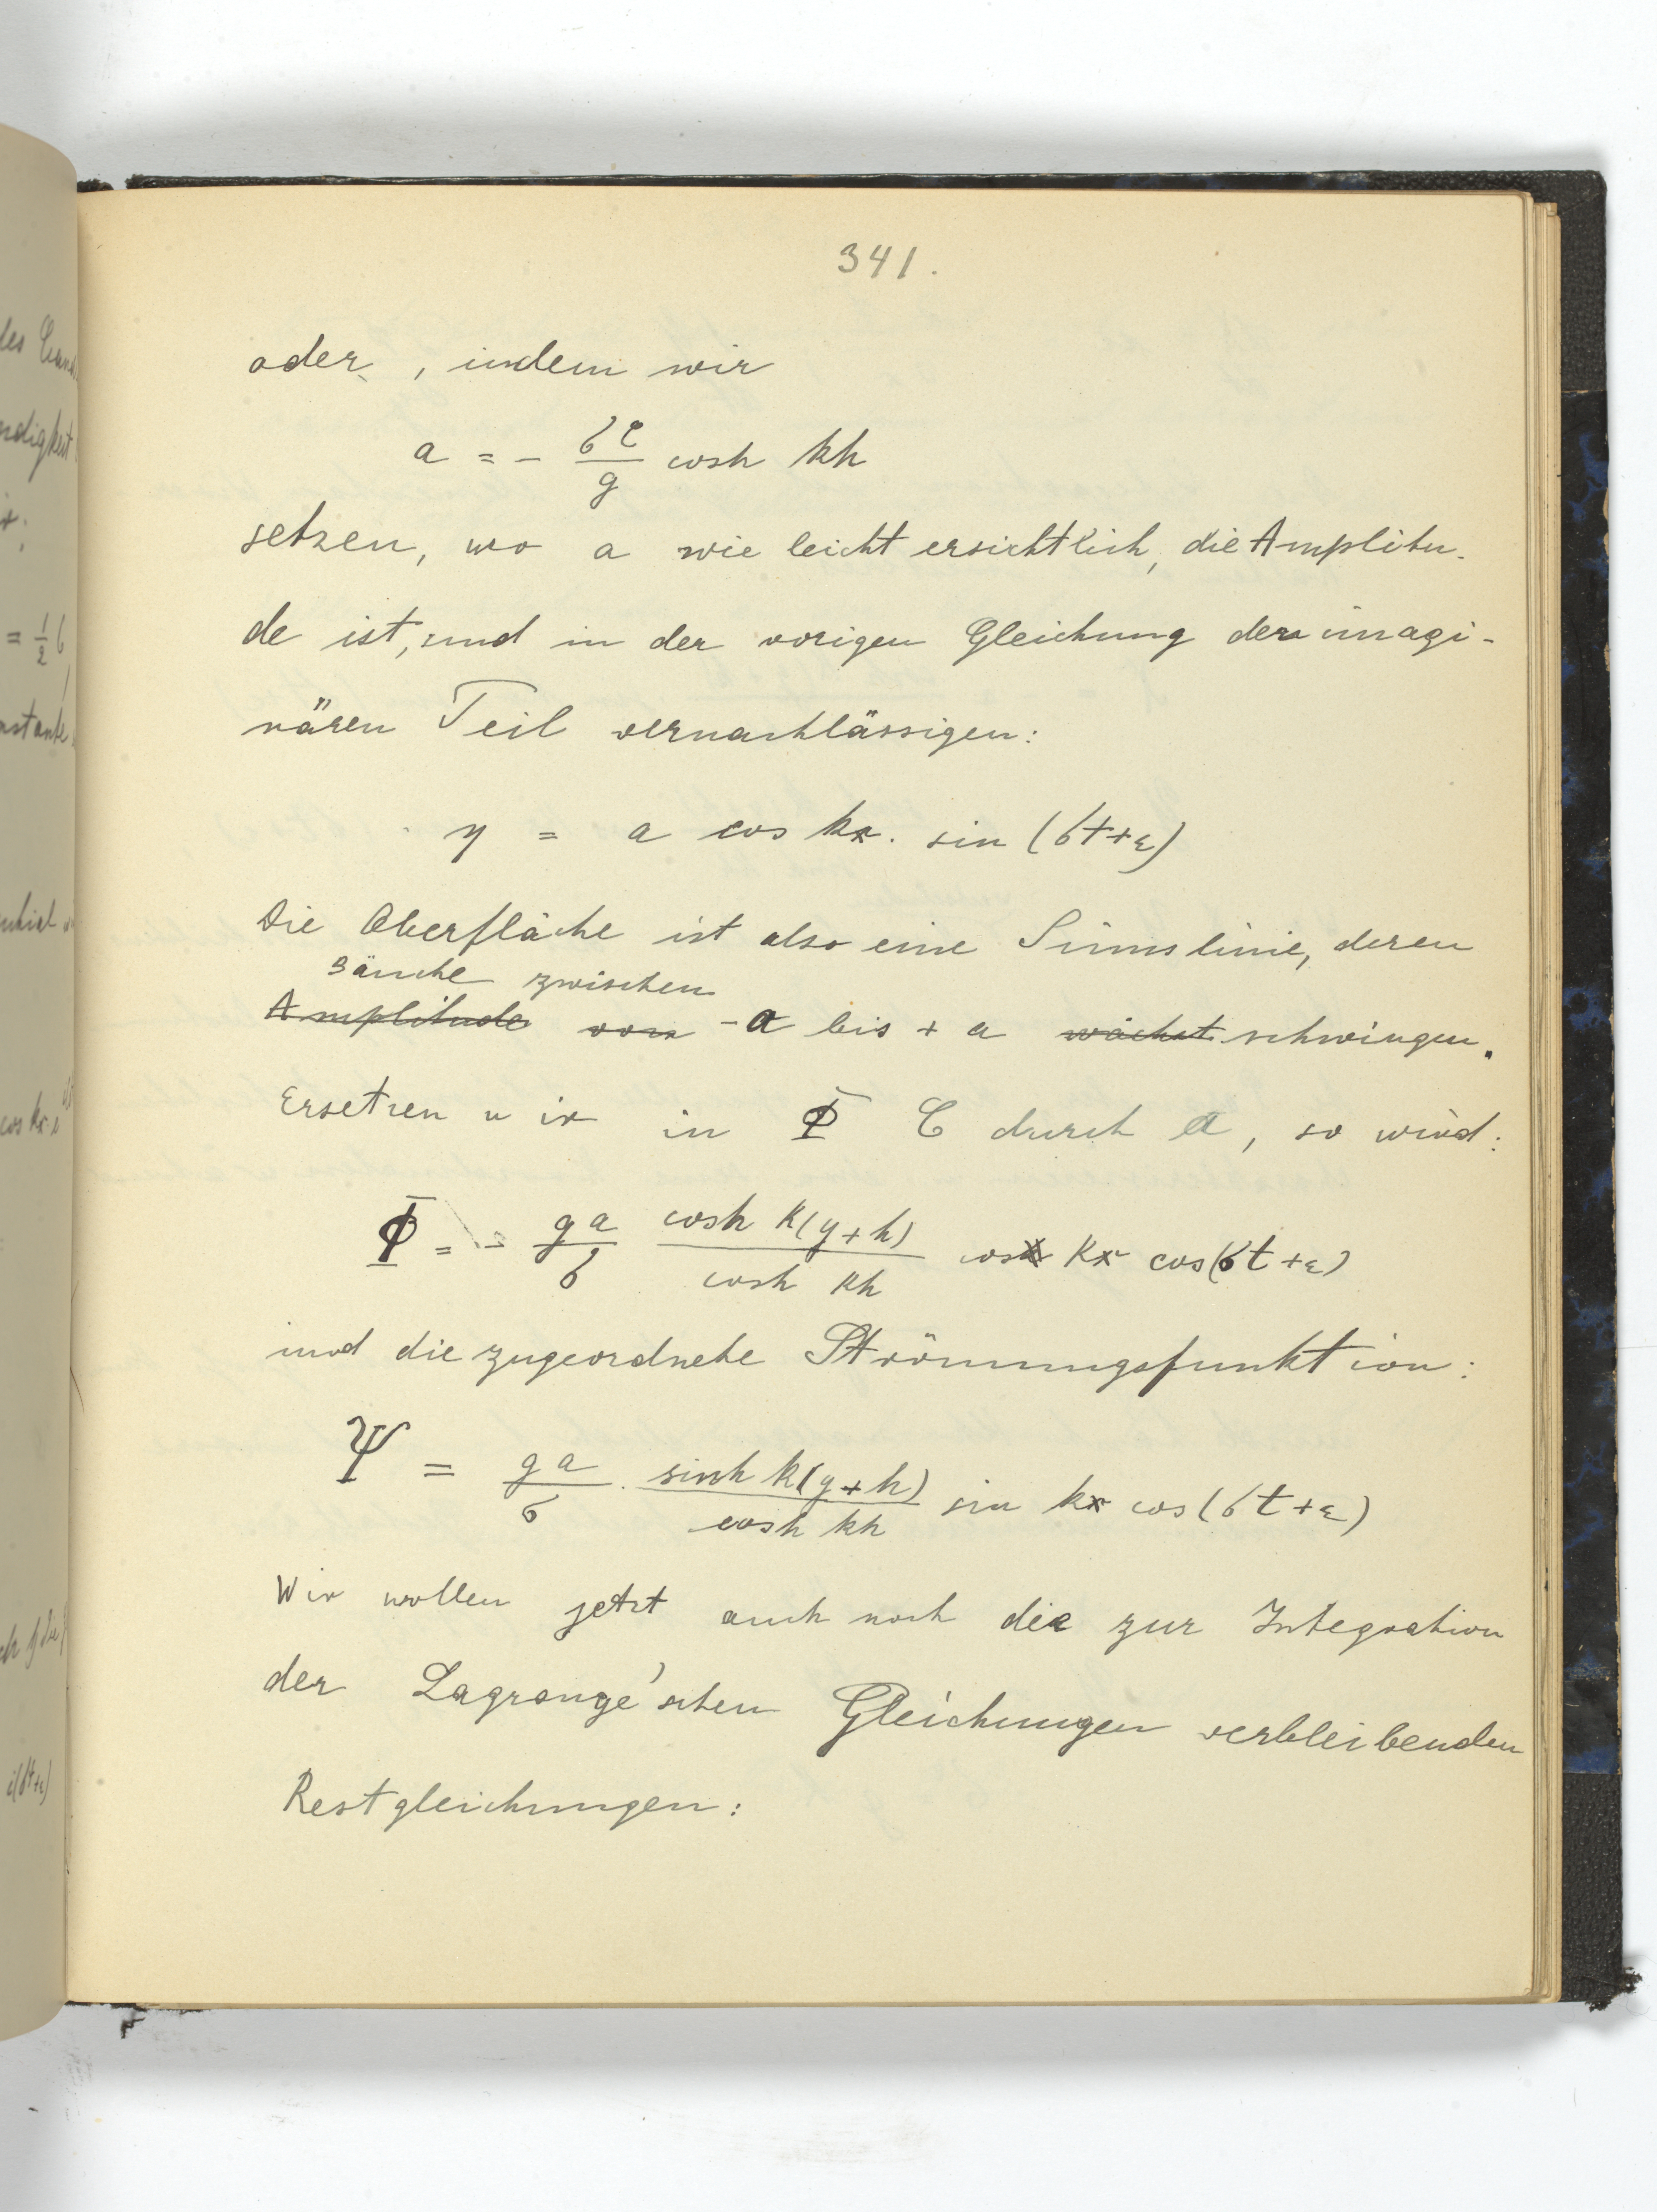 341.
oder, indem wir
a = - σC/g cosh kh
setzen, wo a wie leicht ersichtlich, die Amplitu-
de ist, und in der vorigen Gleichung den imagi-
nären Teil vernachlässigen:
η = a cos kx . sin (σt+ε)
Die Oberfläche ist also eine Sinuslinie, deren
Bäuche zwischen
Amplitude von -a bis + a wächst schwingen.
Ersetzen wir in Φ C durch a, so wird:
Φ = - ga/σ cosh k(y+h)/cosh kh cos kx cos(σt+ε)
und die zugeordnete Strömungsfunktion:
Ψ = ga/σ . sinh k(y+h)/cosh kh sin kx cos(σt+ε)
Wir wollen jetzt auch noch die zur Integration
der Lagrange'schen Gleichungen verbleibenden
Restgleichungen: